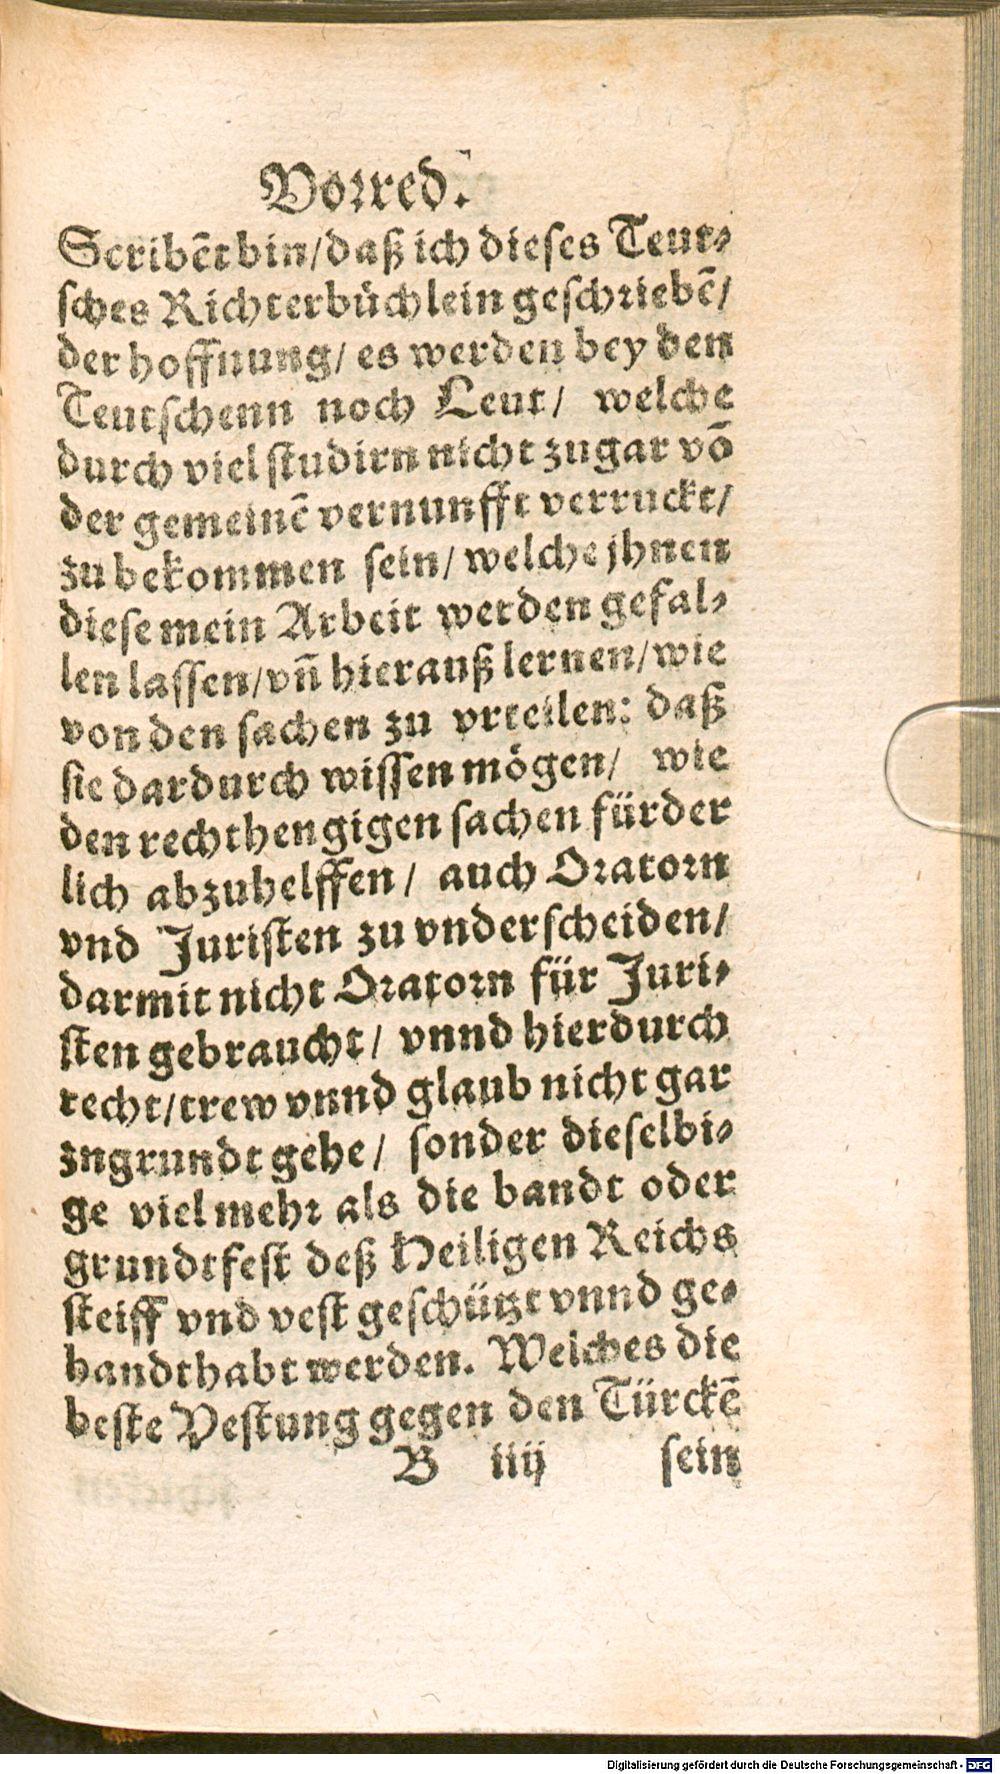 Vorred.
Scribēt bin/daß ich dieses Teut⸗
sches Richterbüchlein geschriebē/
der hoffnung/ es werden bey den
Teutschenn noch Leut/ welche
durch viel studirn nicht zugar vō
der gemeinē vernunfft verruckt/
zu bekommen sein/ welche jhnen
diese mein Arbeit werden gefal⸗
len lassen/vn̄ hierauß lernen/wie
von den sachen zu vrteilen: daß
sie dardurch wissen mögen/ wie
den rechthengigen sachen fürder
lich abzuhelffen/ auch Oratorn
vnd Juristen zu vnderscheiden/
darmit nicht Oratorn für Juri⸗
sten gebraucht/ vnnd hierdurch
recht/trew vnnd glaub nicht gar
zngrundt gehe/ sonder dieselbi⸗
ge viel mehr als die bandt oder
grundtfest deß Heiligen Reichs
steiff vnd vest geschützt vnnd ge⸗
handthabt werden. Welches die
beste Vestung gegen den Türckē
B iiij sein
Digitalisierung gefördert durch die Deutsche Forschungsgemeinschaft - DFG